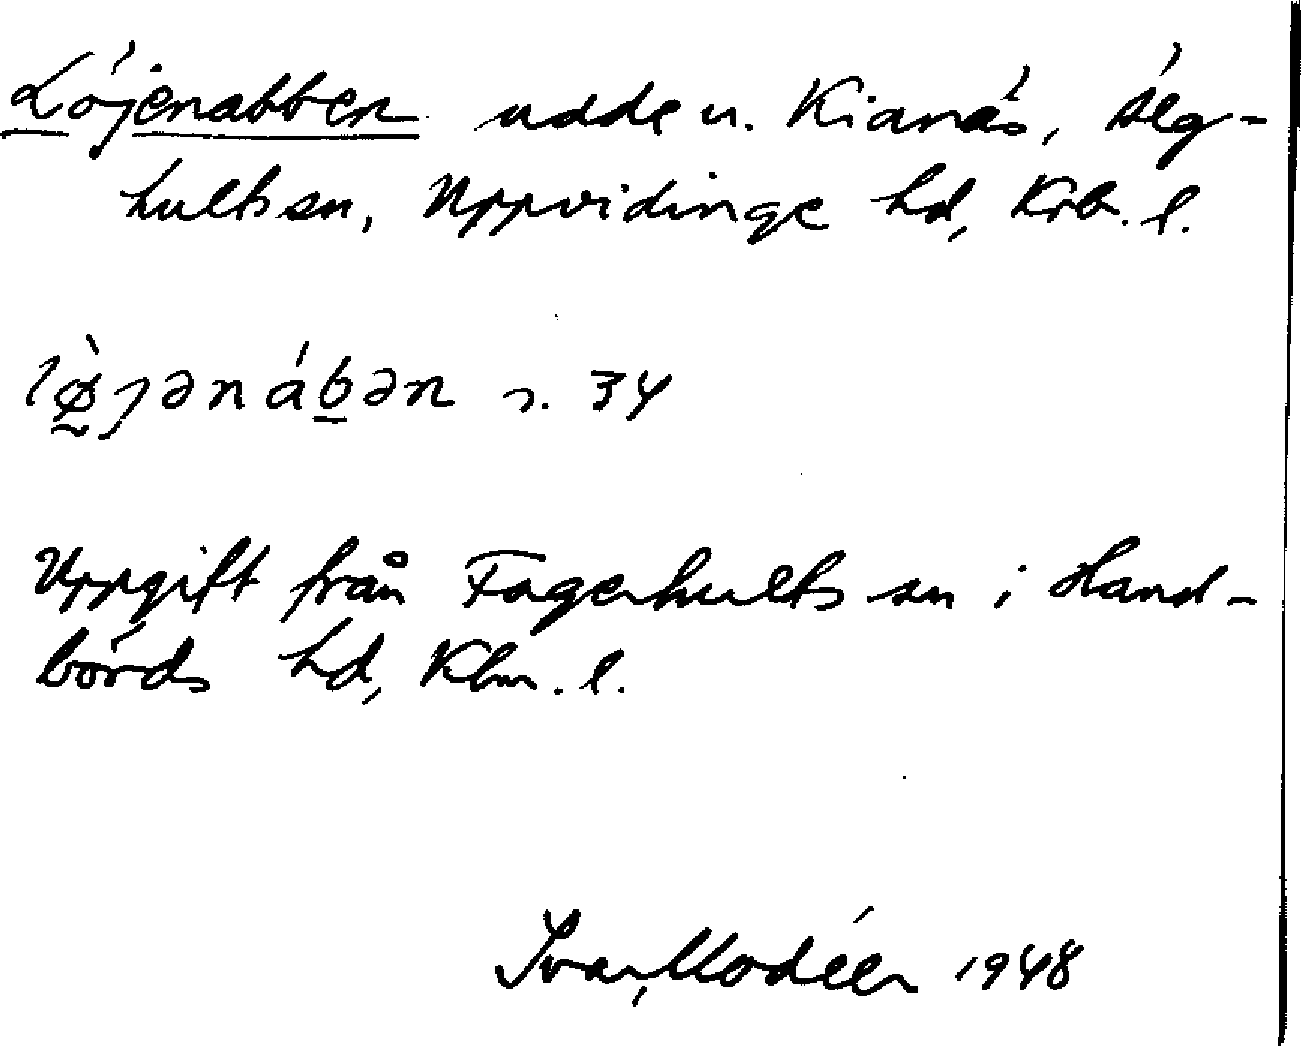 Löjenabben udde u. Kianäs, Älg-
hults sn, Uppvidinge hd, Krb. l.
lø̰̀jənáb̲ən s. 34
Uppgift från Fagerhults sn i Hand-
börds hd, Klm. l.
Ivar Modéer 1948